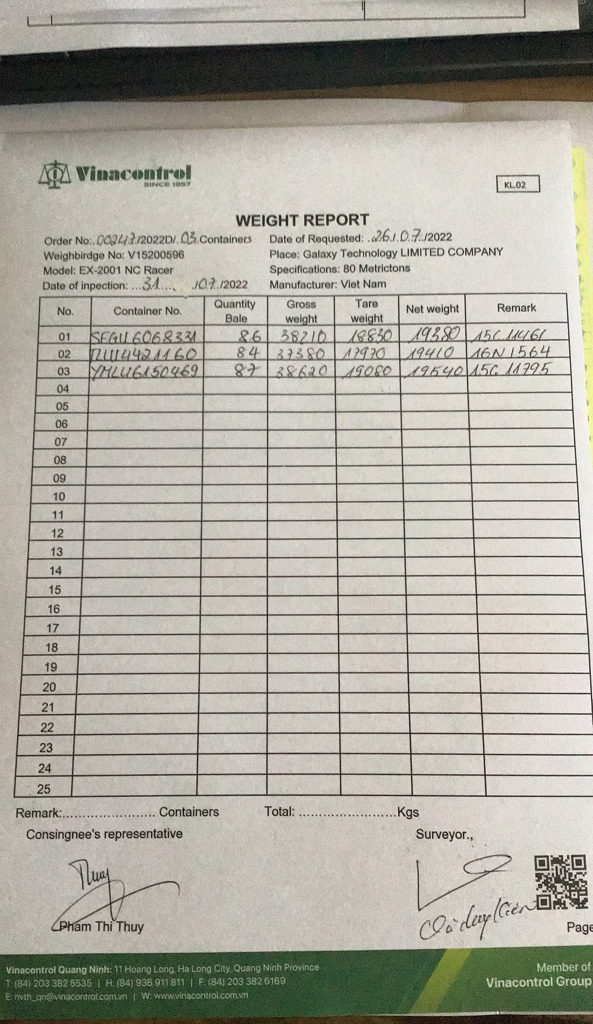 Vinacontrol
SINCE 1957
KL.02
WEIGHT REPORT
Order No:.00247/2022D/.03.Containers Date of Requested: .26/.0.7./2022
Weighbirdge No: V15200596 Place: Galaxy Technology LIMITED COMPANY
Model: EX-2001 NC Racer Specifications: 80 Metrictons
Date of inpection: ...31..../07./2022 Manufacturer: Viet Nam
No. Container No. Quantity Bale Gross weight Tare weight Net weight Remark
01 SEGU6068331 86 38210 18830 19380 15C 11461
02 84 37380 17970 19410 16N 1564
03 YMLU6150469 87 38620 19080 19540 15C 11795
04
05
06
07
08
09
10
11
12
13
14
15
16
17
18
19
20
21
22
23
24
25
Remark:........................ Containers Total: .........................Kgs
Consingnee's representative Surveyor.,
Thuy
Pham Thi Thuy
Page
Vinacontrol Quang Ninh: 11 Hoang Long, Ha Long City, Quang Ninh Province
T: (84) 203 382 5535 | H: (84) 936 911 811 | F: (84) 203 382 6169
E: nvth_qn@vinacontrol.com.vn | W: www.vinacontrol.com.vn
Member of
Vinacontrol Group